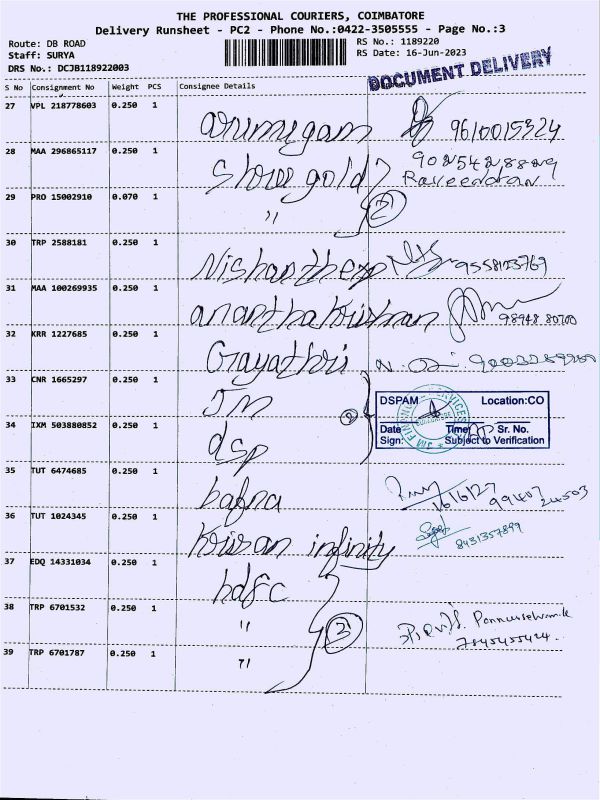 THE PROFESSIONAL COURIERS, COIMBATORE
Delivery Runsheet - PC2 - Phone No.:0422-3505555 - Page No.:3
Route: DB ROAD
Staff: SURYA
DRS No.: DCJB118922003
RS No.: 1189220
RS Date: 16-Jun-2023
DOCUMENT DELIVERY
S No Consignment No Weight PCS Consignee Details
27 VPL 218778603 0.250 1 arumugam 9610015324
28 MAA 296865117 0.250 1 Shree gold 9025428829
Raveendran
29 PRO 15002910 0.070 1 " 2
30 TRP 2588181 0.250 1 9558123769
31 MAA 100269935 0.250 1 ananthakrishnan 98948 80700
32 KRR 1227685 0.250 1 Gayathri
33 CNR 1665297 0.250 1 JM
DSPAM Location:CO
34 IXM 503880852 0.250 1 dsp
Date Time Sr. No.
Sign: Subject to Verification
35 TUT 6474685 0.250 1 bafna 99407 24503
36 TUT 1024345 0.250 1 Krisan infinity 8431357899
37 EDQ 14331034 0.250 1 hdfc
38 TRP 6701532 0.250 1 " 3
39 TRP 6701787 0.250 1 "